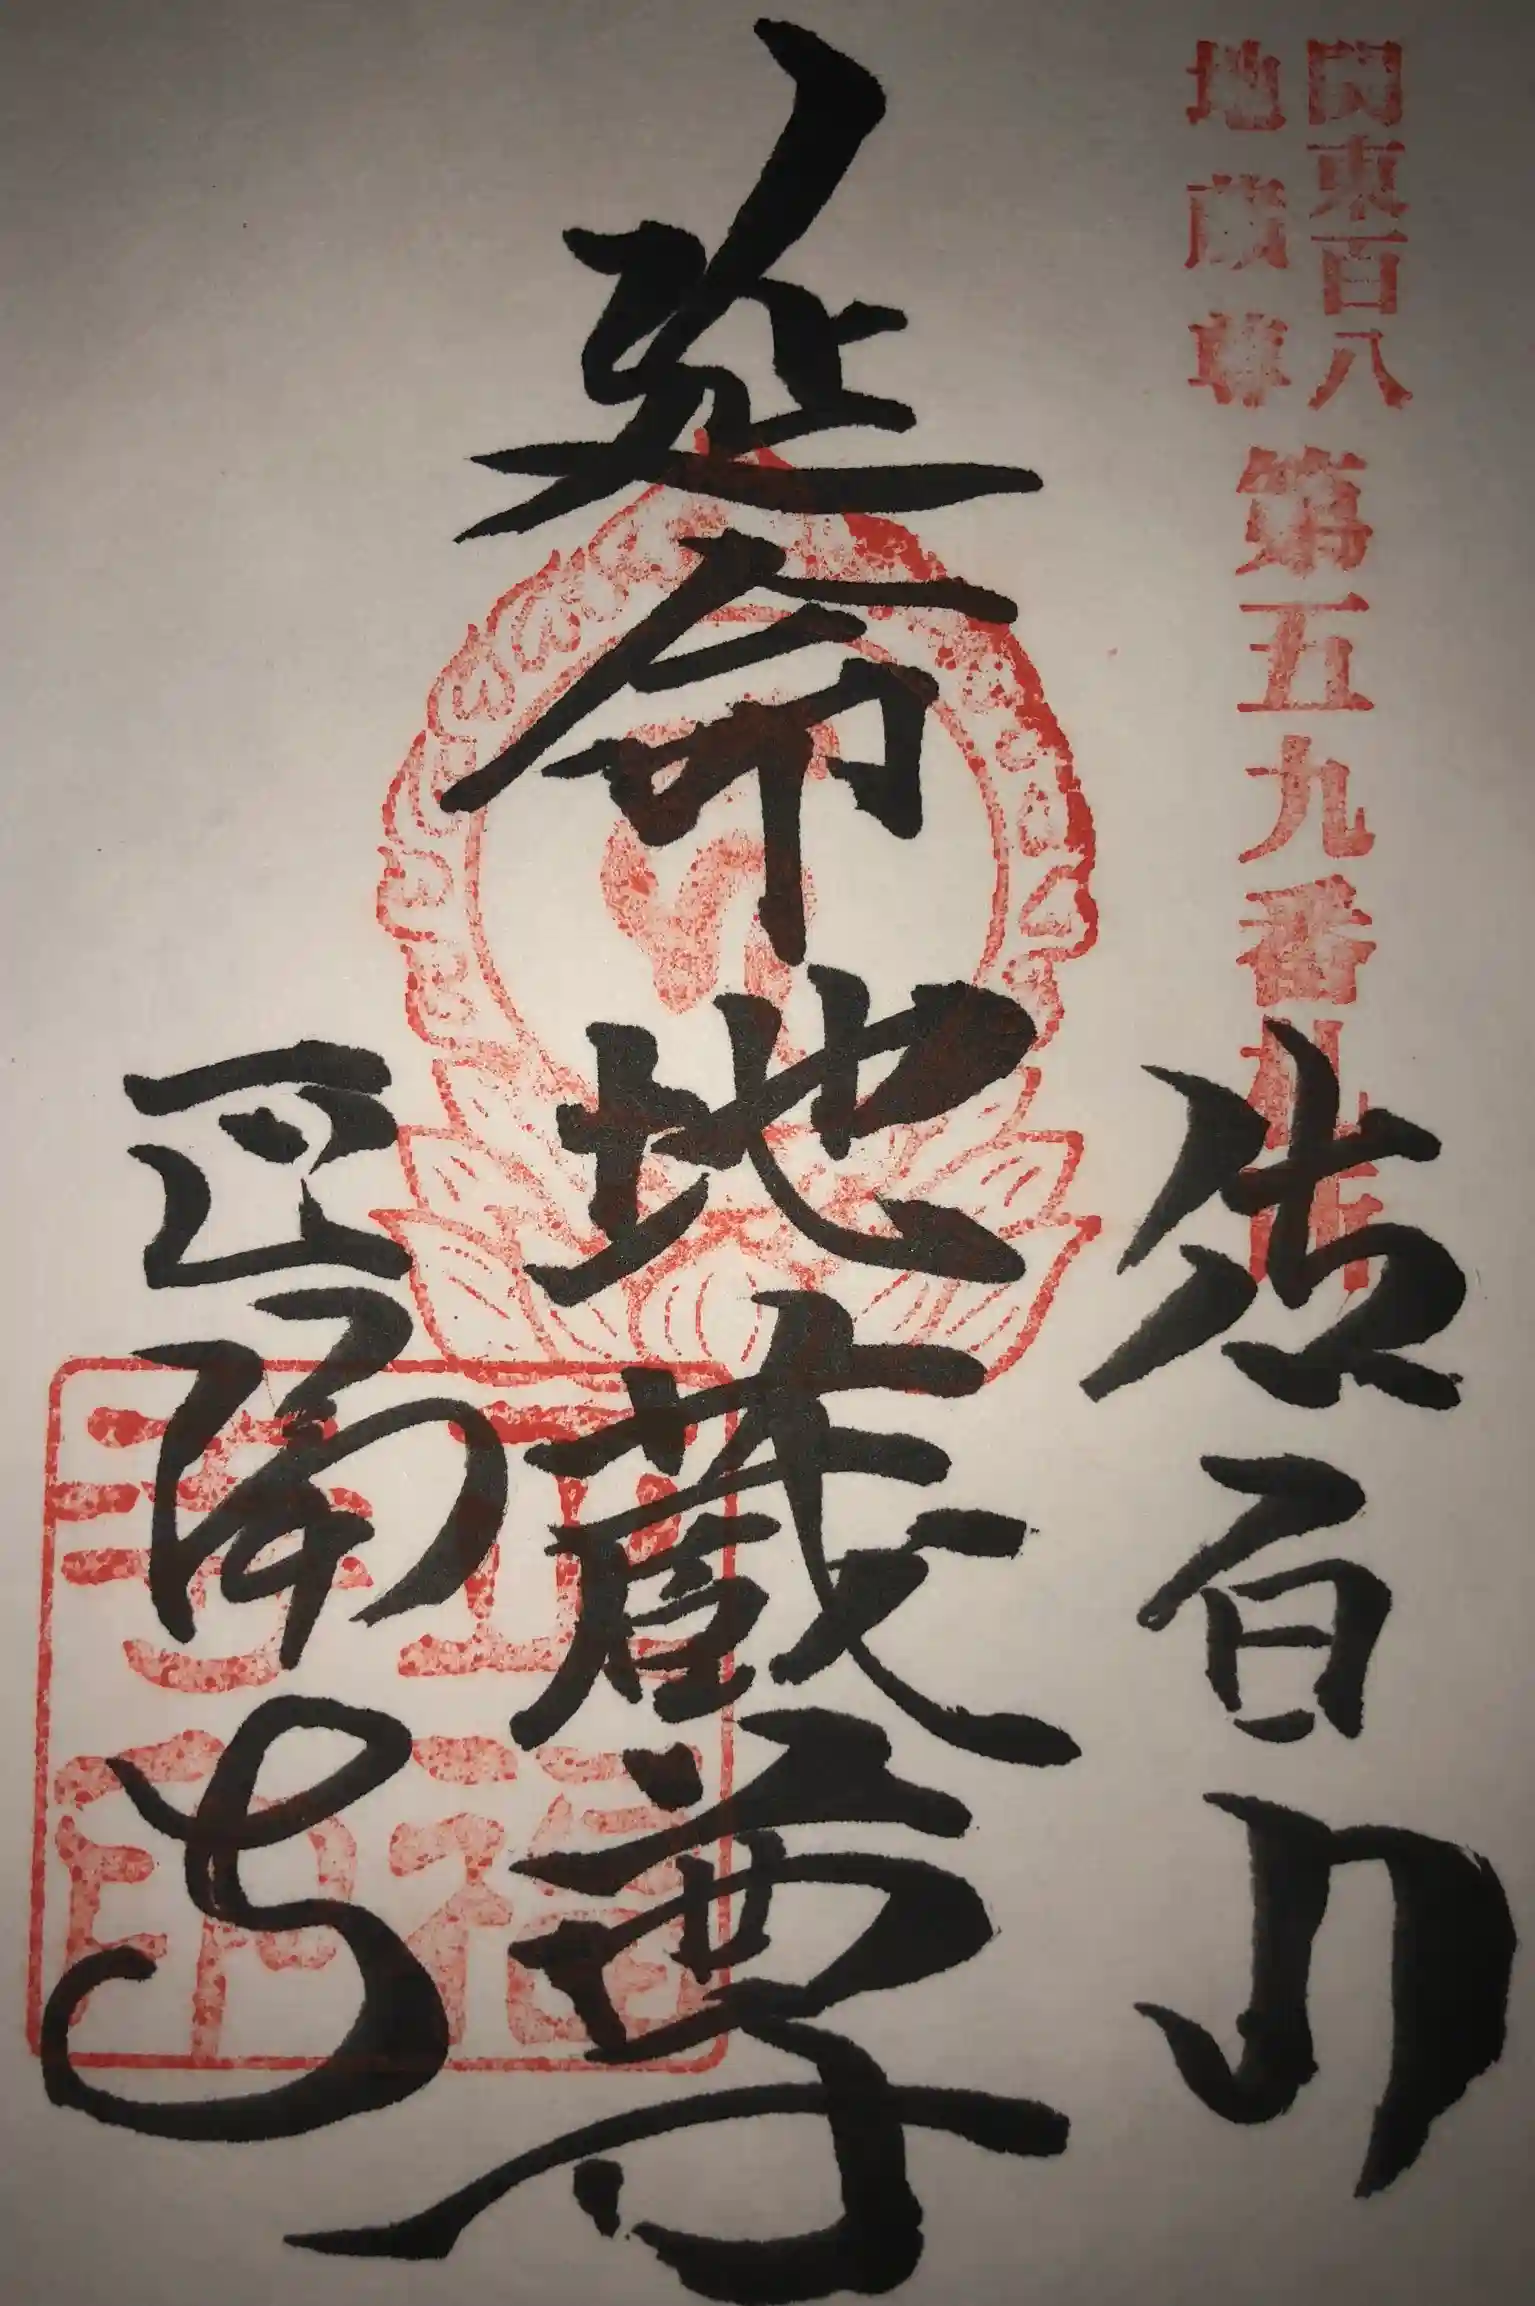 関東百八
地蔵尊
第五九番札所
佐白山
延命地蔵尊
正福寺
正福
寺印